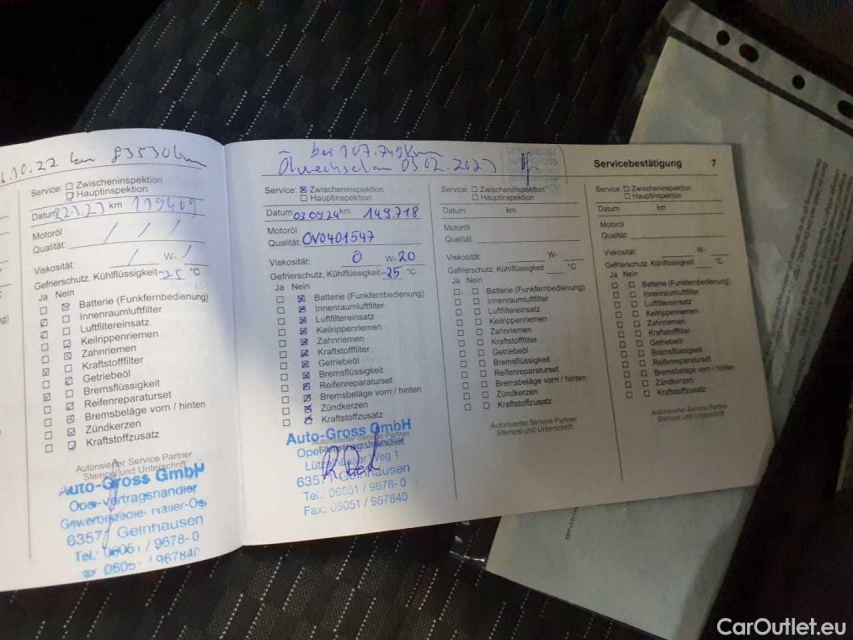 .10.22 km 83530km
Service: Zwischeninspektion
Hauptinspektion
Datum km
Motoröl
Qualität:
Viskosität: W-
Gefrierschutz, Kühlflüssigkeit -25 °C
Ja Nein
Batterie (Funkfernbedienung)
Innenraumluftfilter
Luftfiltereinsatz
Keilrippenriemen
Zahnriemen
Kraftstofffilter
Getriebeöl
Bremsflüssigkeit
Reifenreparaturset
Bremsbeläge vorn / hinten
Zündkerzen
Kraftstoffzusatz
Autorisierter Service Partner
Stempel und Unterschrift
Auto-Gross GmbH
Opel-Vertragshändler
63571 Gelnhausen
Tel.: 06051 / 9678-0
967840
bei 107.749km
Ölwechsel am 03.02.2023
Service: Zwischeninspektion
Hauptinspektion
Datum 03.09.24 km 149.718
Motoröl
Qualität: OV0401547
Viskosität: 0 W-20
Gefrierschutz, Kühlflüssigkeit -25 °C
Ja Nein
Batterie (Funkfernbedienung)
Innenraumluftfilter
Luftfiltereinsatz
Keilrippenriemen
Zahnriemen
Kraftstofffilter
Getriebeöl
Bremsflüssigkeit
Reifenreparaturset
Bremsbeläge vorn / hinten
Zündkerzen
Kraftstoffzusatz
Auto-Gross GmbH
Weg 1
63571 Gelnhausen
Tel.: 06051 / 9678-0
Fax: 06051 / 967840
Servicebestätigung 7
Service: Zwischeninspektion
Hauptinspektion
Datum km
Motoröl
Qualität:
Viskosität: W-
Gefrierschutz, Kühlflüssigkeit °C
Ja Nein
Batterie (Funkfernbedienung)
Innenraumluftfilter
Luftfiltereinsatz
Keilrippenriemen
Zahnriemen
Kraftstofffilter
Getriebeöl
Bremsflüssigkeit
Reifenreparaturset
Bremsbeläge vorn / hinten
Zündkerzen
Kraftstoffzusatz
Autorisierter Service Partner
Stempel und Unterschrift
Service: Zwischeninspektion
Hauptinspektion
Datum km
Motoröl
Qualität:
Viskosität: W-
Gefrierschutz, Kühlflüssigkeit °C
Ja Nein
Batterie (Funkfernbedienung)
Innenraumluftfilter
Luftfiltereinsatz
Keilrippenriemen
Zahnriemen
Kraftstofffilter
Getriebeöl
Bremsflüssigkeit
Reifenreparaturset
Bremsbeläge vorn / hinten
Zündkerzen
Kraftstoffzusatz
Autorisierter Service Partner
Stempel und Unterschrift
CarOutlet.eu